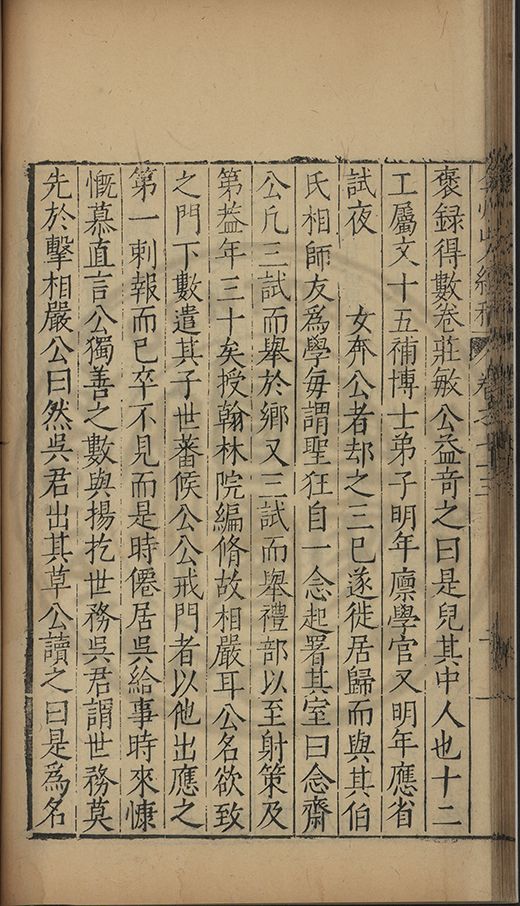 褎録得數卷莊敏公益竒之曰是兒其中人也十二
工屬文十五補博士弟子明年廪學官又明年應省
試夜　女奔公者却之三已遂徙居歸而與其伯
氏相師友爲學每謂聖狂自一念起署其室曰念齋
公凢三試而舉於鄉又三試而舉禮部以至射策及
第葢年三十矣授翰林院編脩故相嚴耳公名欲致
之門下數遣其子世蕃候公公戒門者以他出應之
第一刺報而已卒不見而是時僊居吳給事時來慷
慨慕直言公獨善之數與揚扢世務吳君謂世務莫
先於擊相嚴公曰然吳君出其草公讀之曰是爲名